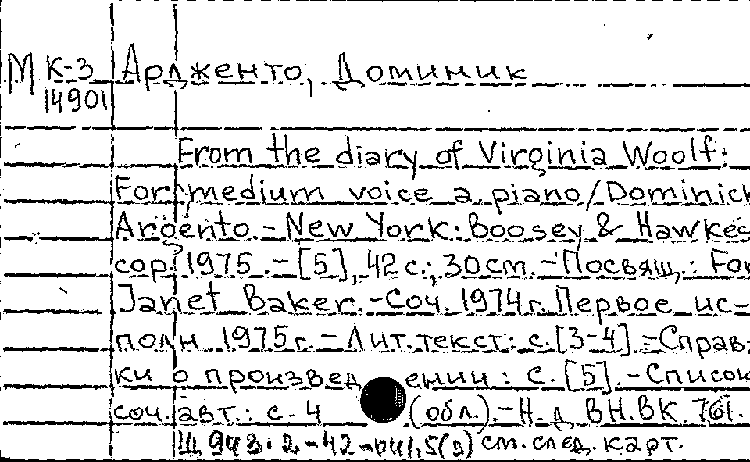 М К-3 Ардженто, Доминик
14901
From the diary of Virginia Woolf:
For medium voice a piano/Dominick
Argento.-New York: Boosey & Hawkes
cop. 1975.-[5], 42 с.; 30см.-Посвящ.: For
Janet Baker.-Соч. 1974г. Первое ис-
полн 1975г.-Лит.текст: с.[3-4].-Справ-
ки о произведении: с.[5].-Список
соч. авт.: с. 4 (обл.).-Н.д. ВН.ВК. 761.
см. след. карт.